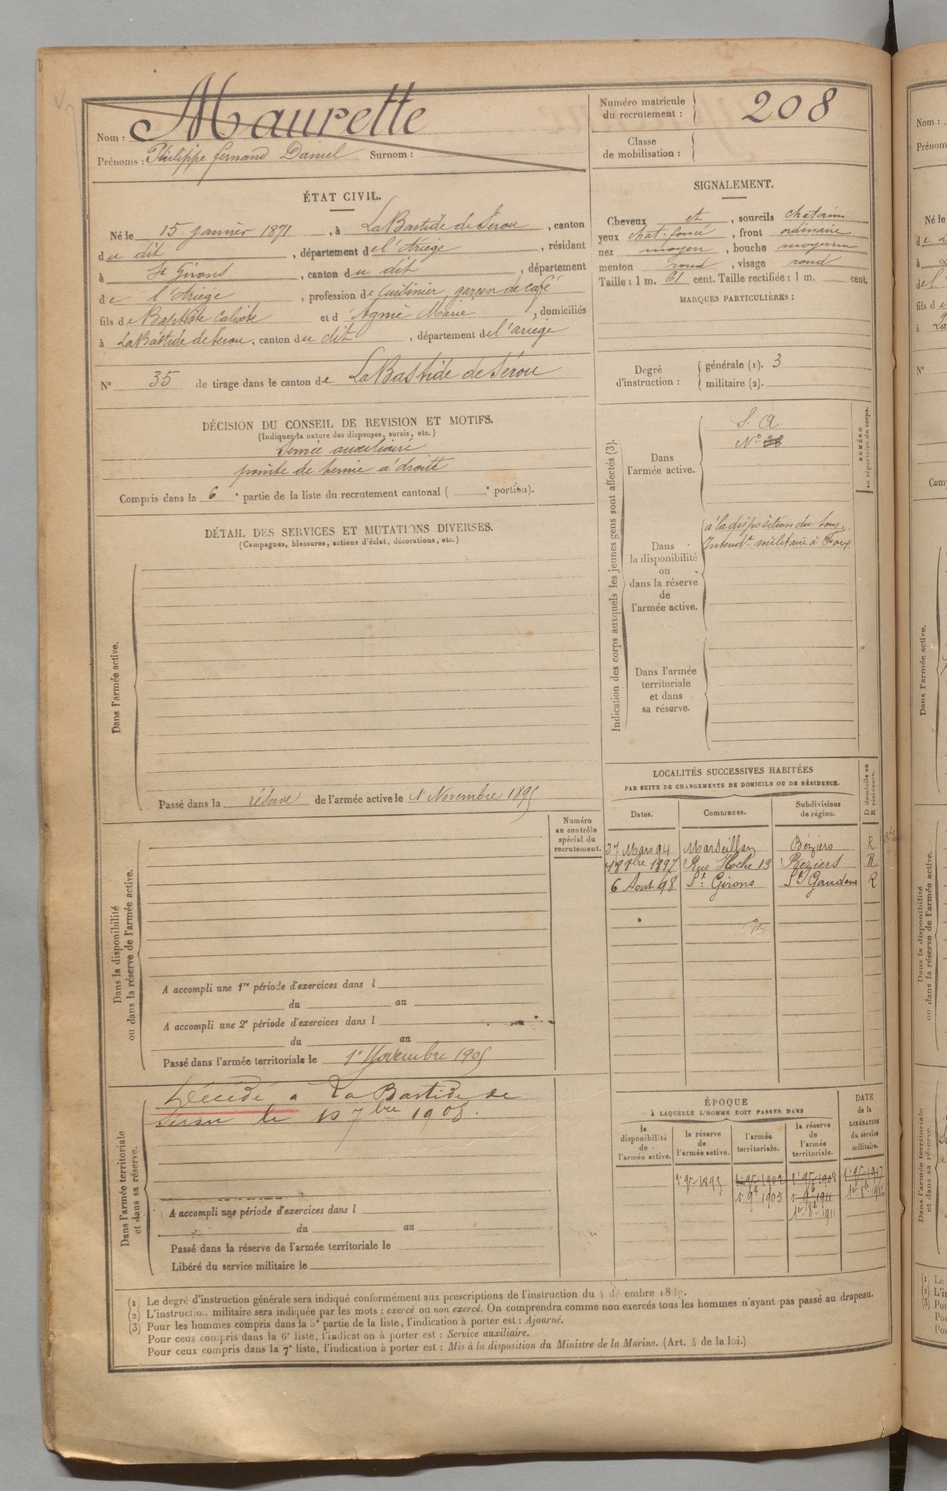 Nom : Maurette
Prénoms : Philippe fernand Daniel Surnom :
Numéro matricule du recrutement : 208
Classe de mobilisation :
ÉTAT CIVIL.
Né le 15 janvier 1871, à LaBastide de Sérou, canton
du dit, département de l'Ariège, résidant
à St Girons, canton du dit, département
de l'Ariège, profession de Cuisinier, garçon de café
fils de Baptiste Calixte et d' Agnié Marie, domiciliés
à LaBastide de Serou, canton du dit, département de l'ariège
N° 35 de tirage dans le canton de LaBastide de Sérou
DÉCISION DU CONSEIL DE REVISION ET MOTIFS.
(Indiquer la nature des dispenses, sursis, etc.)
Service auxiliaire
pointe de hernie à droite
Compris dans la 6e partie de la liste du recrutement cantonal ( e portion).
DÉTAIL DES SERVICES ET MUTATIONS DIVERSES.
(Campagnes, blessures, actions d'éclat, décorations, etc.)
Dans l'armée active.
Passé dans la réserve de l'armée active le 1r Novembre 1895
Numéro au contrôle spécial du recrutement.
Dans la disponibilité ou dans la réserve de l'armée active.
A accompli une 1re période d'exercices dans l
du au
A accompli une 2e période d'exercices dans l
du au
Passé dans l'armée territoriale le 1r Novembre 1905
Dans l'armée territoriale et dans sa réserve.
Décédé a La Bastide de
Serou le 7bre 1908.
A accompli une période d'exercices dans l
du au
Passé dans la réserve de l'armée territoriale le
Libéré du service militaire le
SIGNALEMENT.
Cheveux et, sourcils chatains
yeux chat. foncé, front ordinaire
nez moyen, bouche moyenne
menton rond, visage rond
Taille : 1 m. 61 cent. Taille rectifiée : 1 m. cent.
MARQUES PARTICULIÈRES :
Degré d'instruction : générale (1). 3
militaire (2).
Indication des corps auxquels les jeunes gens sont affectés (3).
NUMÉRO au répertoire du corps.
Dans l'armée active.
S. A.
N°
Dans la disponibilité ou dans la réserve de l'armée active.
à la disposition du Sous-
Intendt militaire à Foix
Dans l'armée territoriale et dans sa réserve.
LOCALITÉS SUCCESSIVES HABITÉES
PAR SUITE DE CHANGEMENTS DE DOMICILE OU DE RÉSIDENCE.
Dates. Communes. Subdivisions de région. D domicile ou R résidence.
27 Mars 94 Marseillan Béziers R
1897 Rue Hoche 13 Béziers R
6 Aout 98 St Girons St Gaudens R
ÉPOQUE
À LAQUELLE L'HOMME DOIT PASSER DANS
DATE de la LIBÉRATION du service militaire.
la disponibilité de l'armée active. la réserve de l'armée active. l'armée territoriale. la réserve de l'armée territoriale.
(1) Le degré d'instruction générale sera indiqué conformément aux prescriptions de l'instruction du
(2) L'instruction militaire sera indiquée par les mots : exercé ou non exercé. On comprendra comme non exercés tous les hommes n'ayant pas passé au drapeau.
(3) Pour les hommes compris dans la 5e partie de la liste, l'indication à porter est : Ajourné.
Pour ceux compris dans la 6e liste, l'indication à porter est : Service auxiliaire.
Pour ceux compris dans la 7e liste, l'indication à porter est : Mis à la disposition du Ministre de la Marine. (Art. 4 de la loi.)